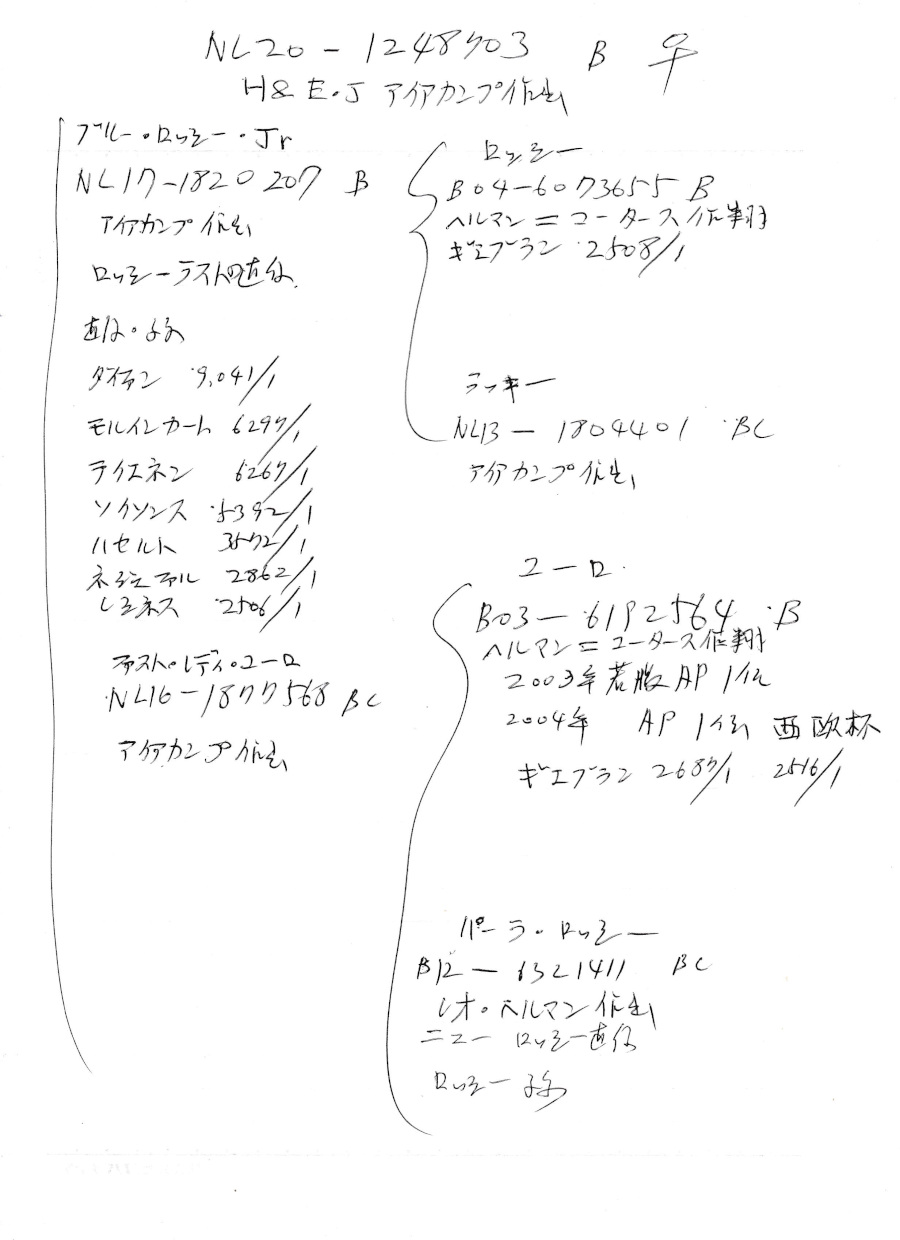 NL20-1248703 B ♀
H&E.J アイアカンプ作出
ブルー・ロッシー・Jr
NL17-1820207 B
アイアカンプ作出
ロッシーラストの直仔
直仔・孫
9,041/1
モルインカート 6297/1
ライエネン 6267/1
ソイソンス 5392/1
ハセルト 3572/1
2862/1
2506/1
ファスト・レディ・ユーロ
NL16-1877568 BC
アイアカンプ作出
ロッシー
B04-6073655 B
ヘルマン=コータース作翔
ギエブラン 2508/1
ラッキー
NL13-1804401 BC
アイアカンプ作出
ユーロ
B03-6192564 B
ヘルマン=コータース作翔
2003年若鳩AP1位
2004年 AP1位 西欧杯
ギエブラン 2687/1 2516/1
パーラ・ロッシー
B12-6321411 BC
レオ・ヘルマン作出
ニューロッシー直仔
ロッシー孫